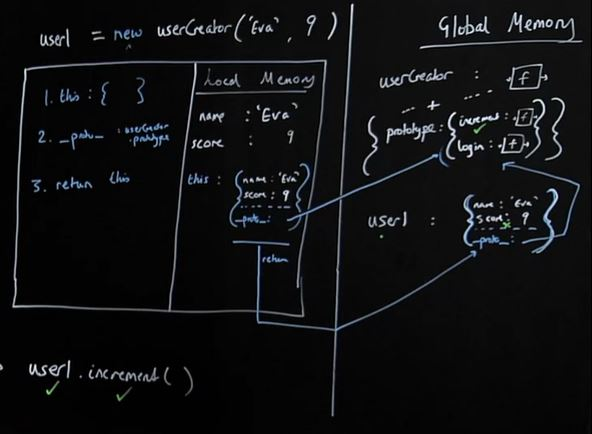 user1 = new userCreator('Eva', 9)
1. this : { }
2. __proto__ : userCreator.prototype
3. return this
Local Memory
name : 'Eva'
score : 9
this : { name : 'Eva'
score : 9
__proto__ : }
return
user1.increment()
Global Memory
userCreator : f
--- + ---
{ prototype : { increment : f
login : f } }
user1 : { name : 'Eva'
score : 9
__proto__ : }